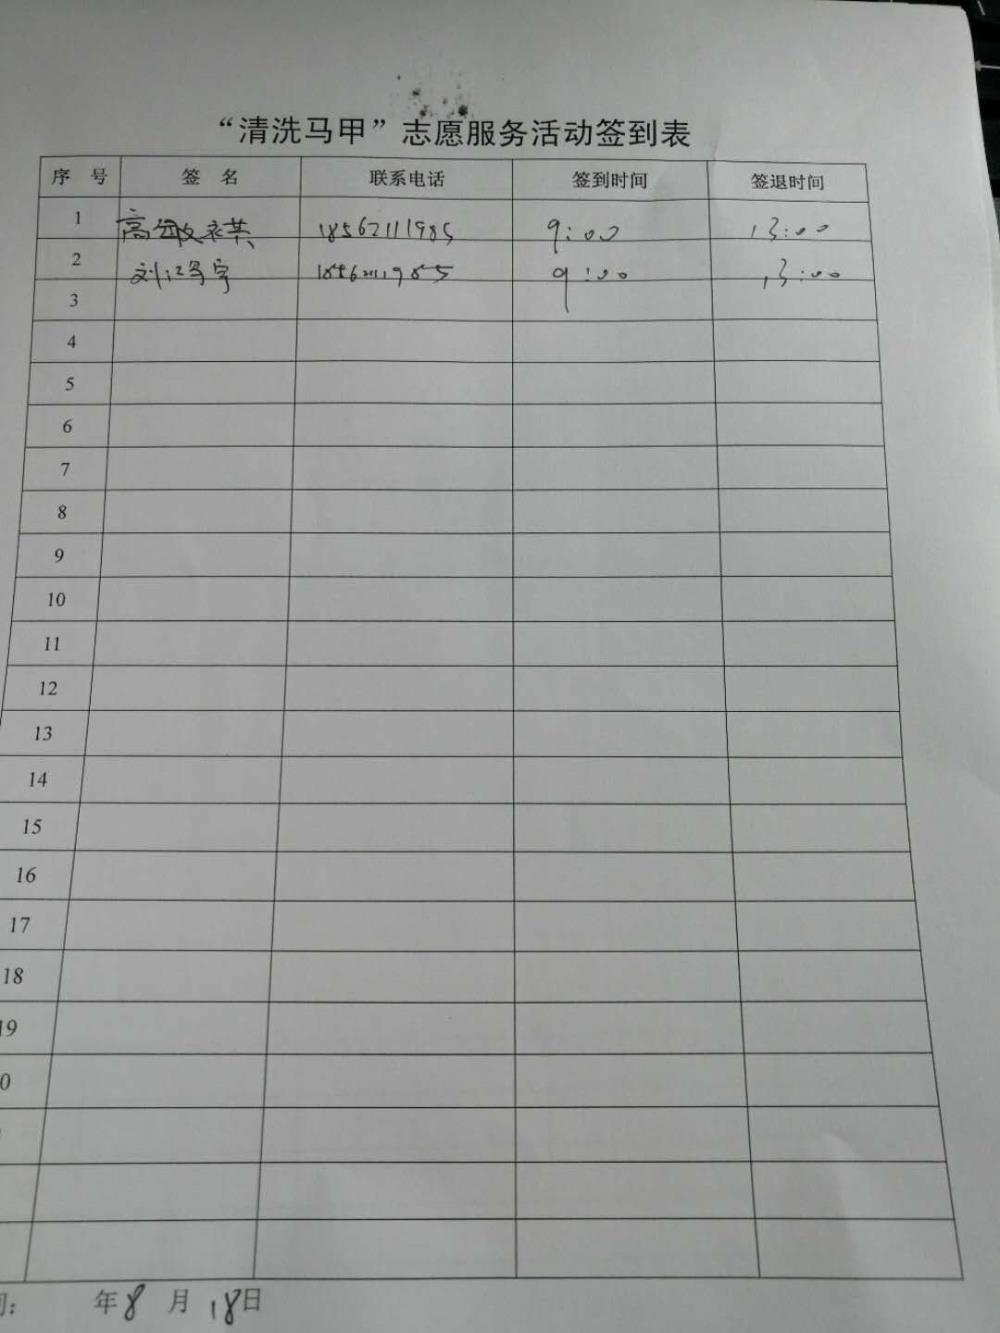 “清洗马甲”志愿服务活动签到表
序 号 签 名 联系电话 签到时间 签退时间
1 高 18562111985 9:00 13:00
2 刘 18562111985 9:00 13:00
3
4
5
6
7
8
9
10
11
12
13
14
15
16
17
18
19
0
间: 年8月18日